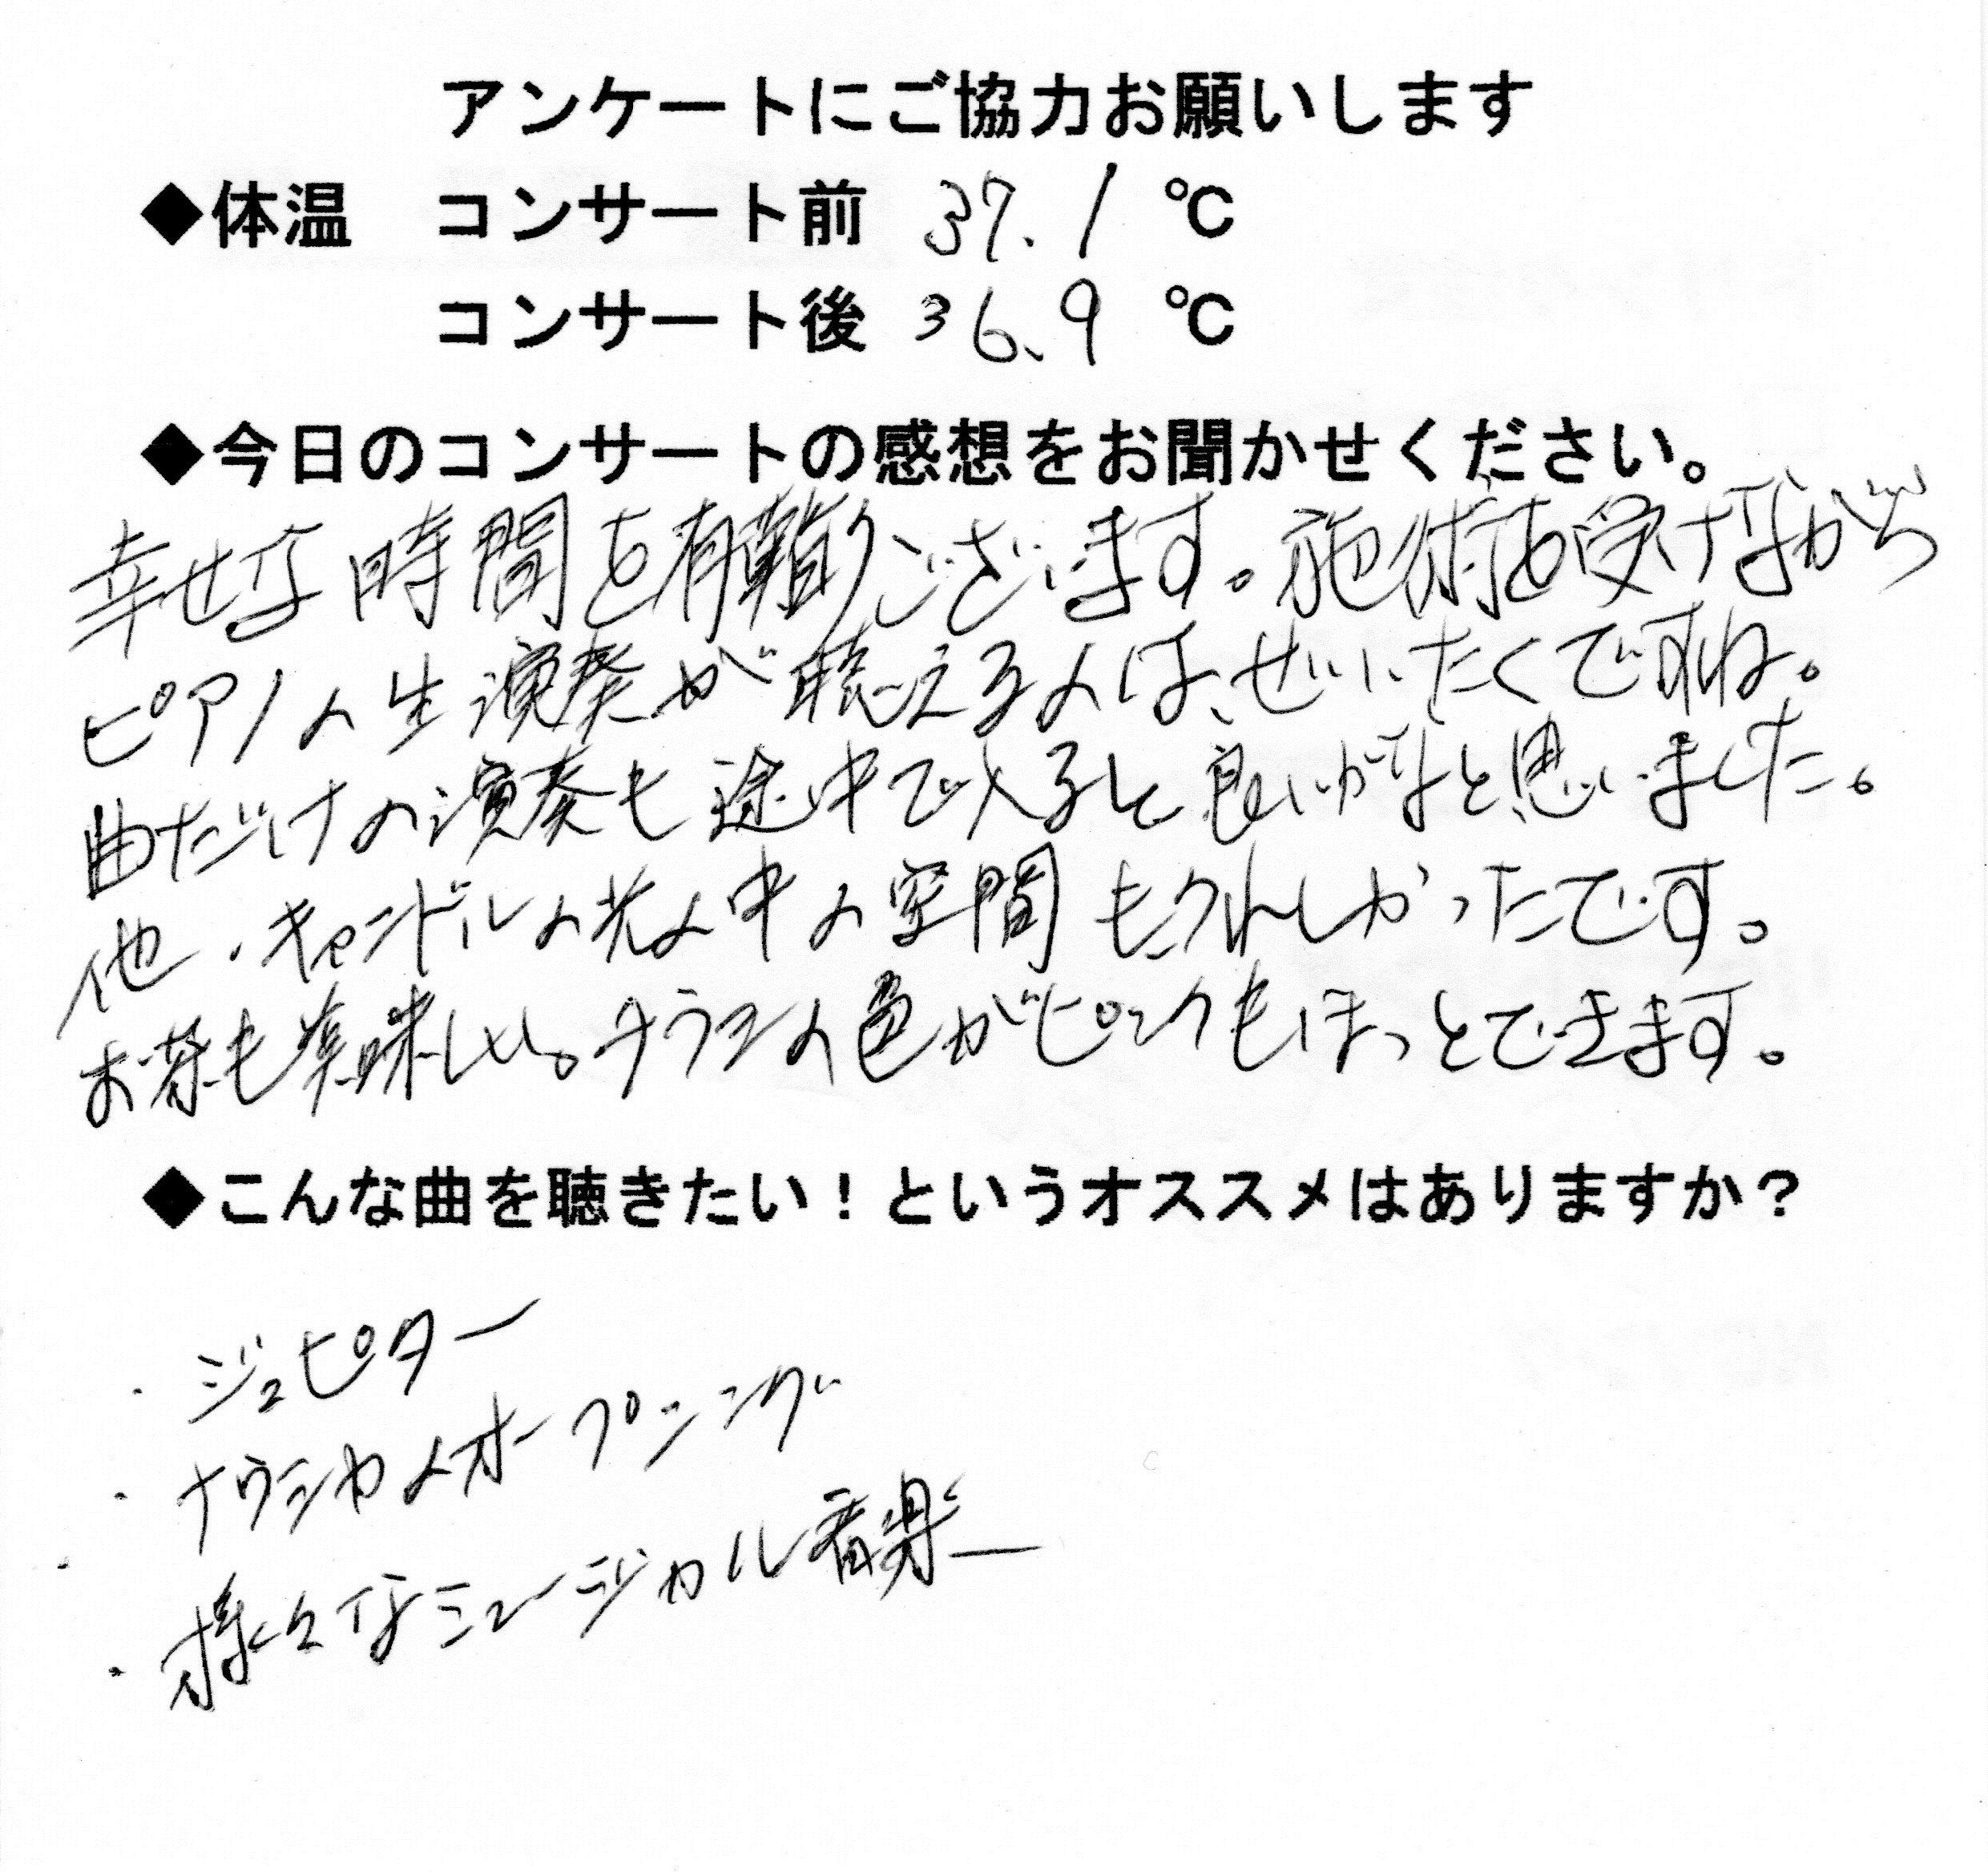 アンケートにご協力お願いします
◆体温 コンサート前 37.1 ℃
コンサート後 36.9 ℃
◆今日のコンサートの感想をお聞かせください。
幸せな時間を有難うございます。施術を受けながら
ピアノの生演奏が聴えるのは、ぜいたくですね。
曲だけの演奏も途中で入ると良いかなと思いました。
他、キャンドルの光の中の空間もうれしかったです。
お茶も美味しい。の色がピンクもほっとできます。
◆こんな曲を聴きたい！というオススメはありますか？
・ジュピター
・ナウシカのオープニング
・様々なミュージカル音楽